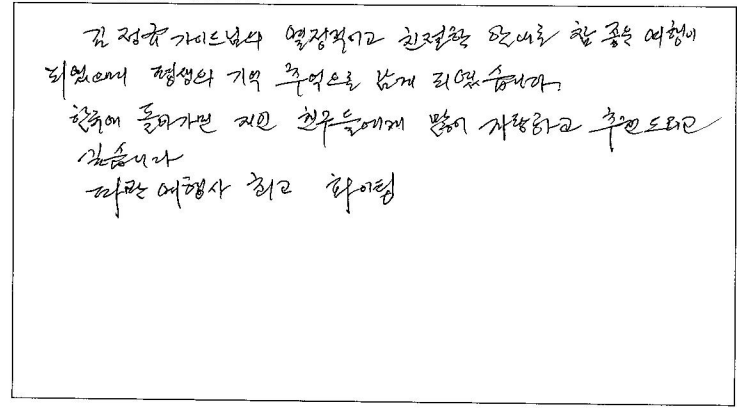 김정규 가이드님의 열정적이고 친절한 안내로 참 좋은 여행이
되었으며 평생의 기억 추억으로 남게 되었습니다.
한국에 돌아가면 지인 친구들에게 많이 자랑하고 추천드리고
싶습니다
여행사 최고 화이팅